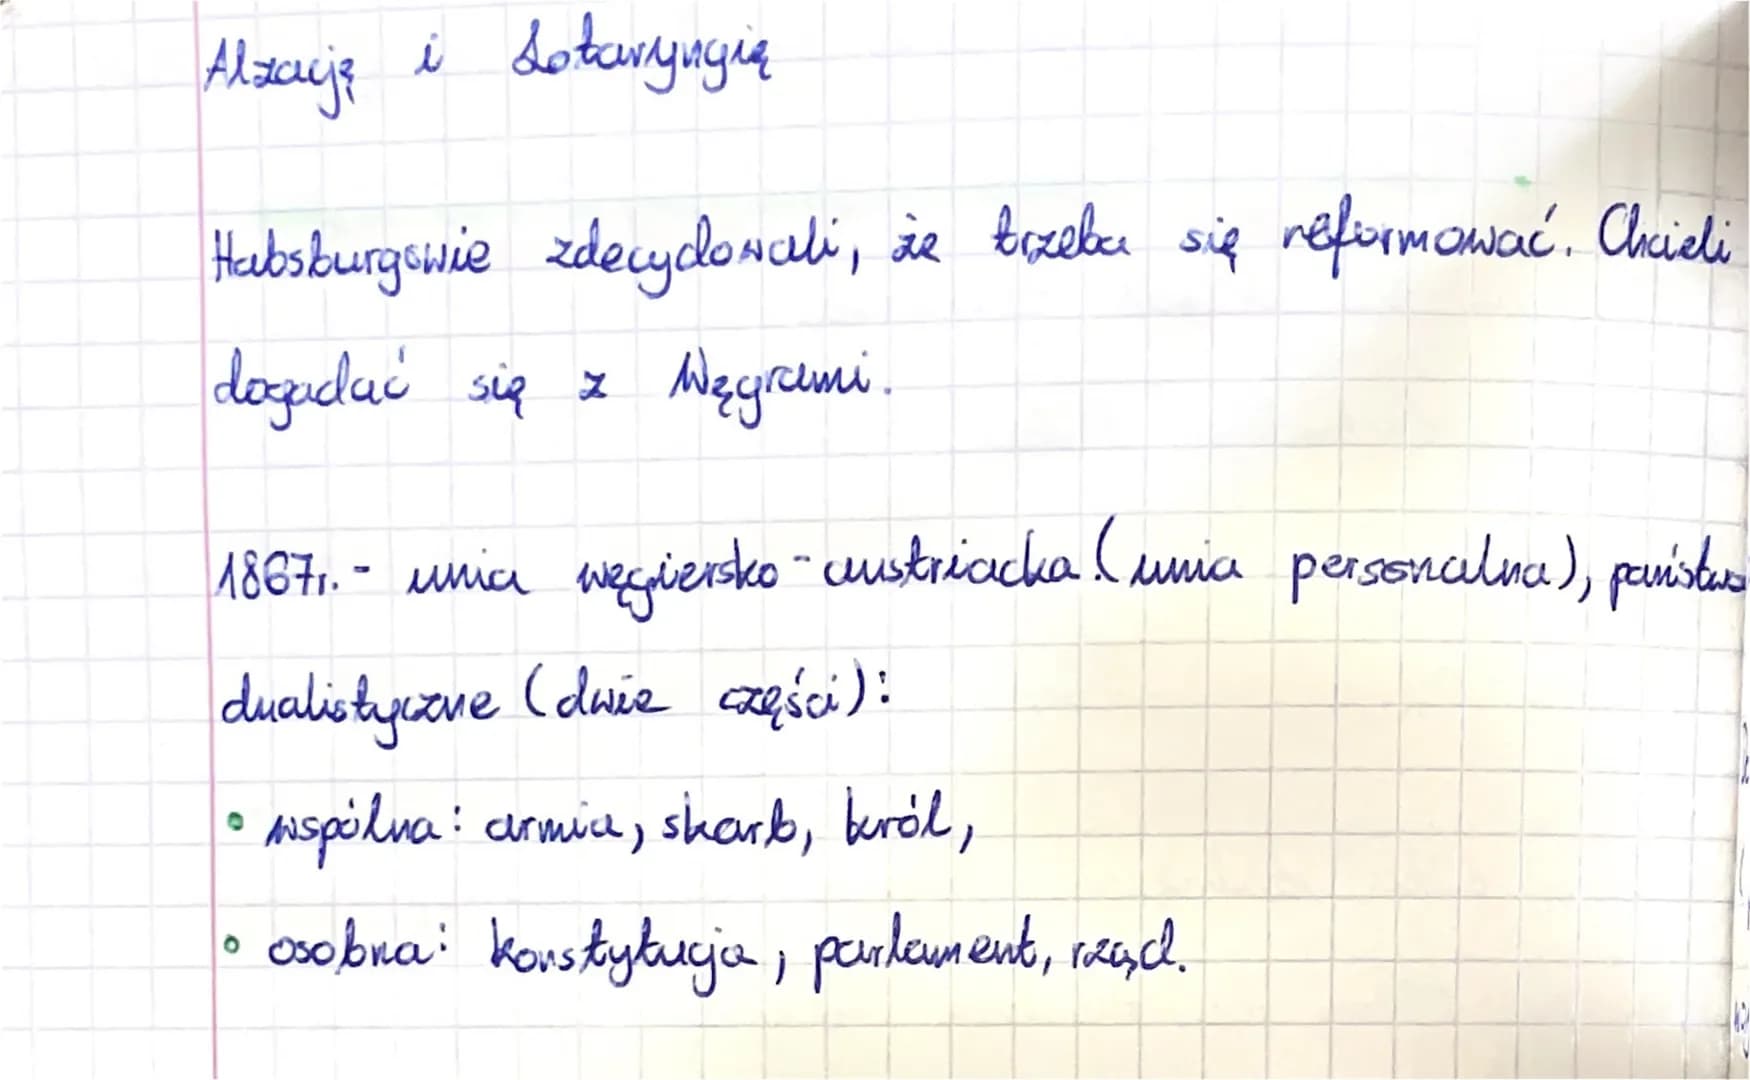 Alzację i Lotaryngię
Habsburgowie zdecydowali, że trzeba się reformować. Chcieli
dogadać się z Węgrami.
1867r. - unia węgiersko-austriacka (unia personalna), państwo
dualistyczne (dwie części):
• wspólna: armia, skarb, król,
• osobna: konstytucja, parlament, rząd.